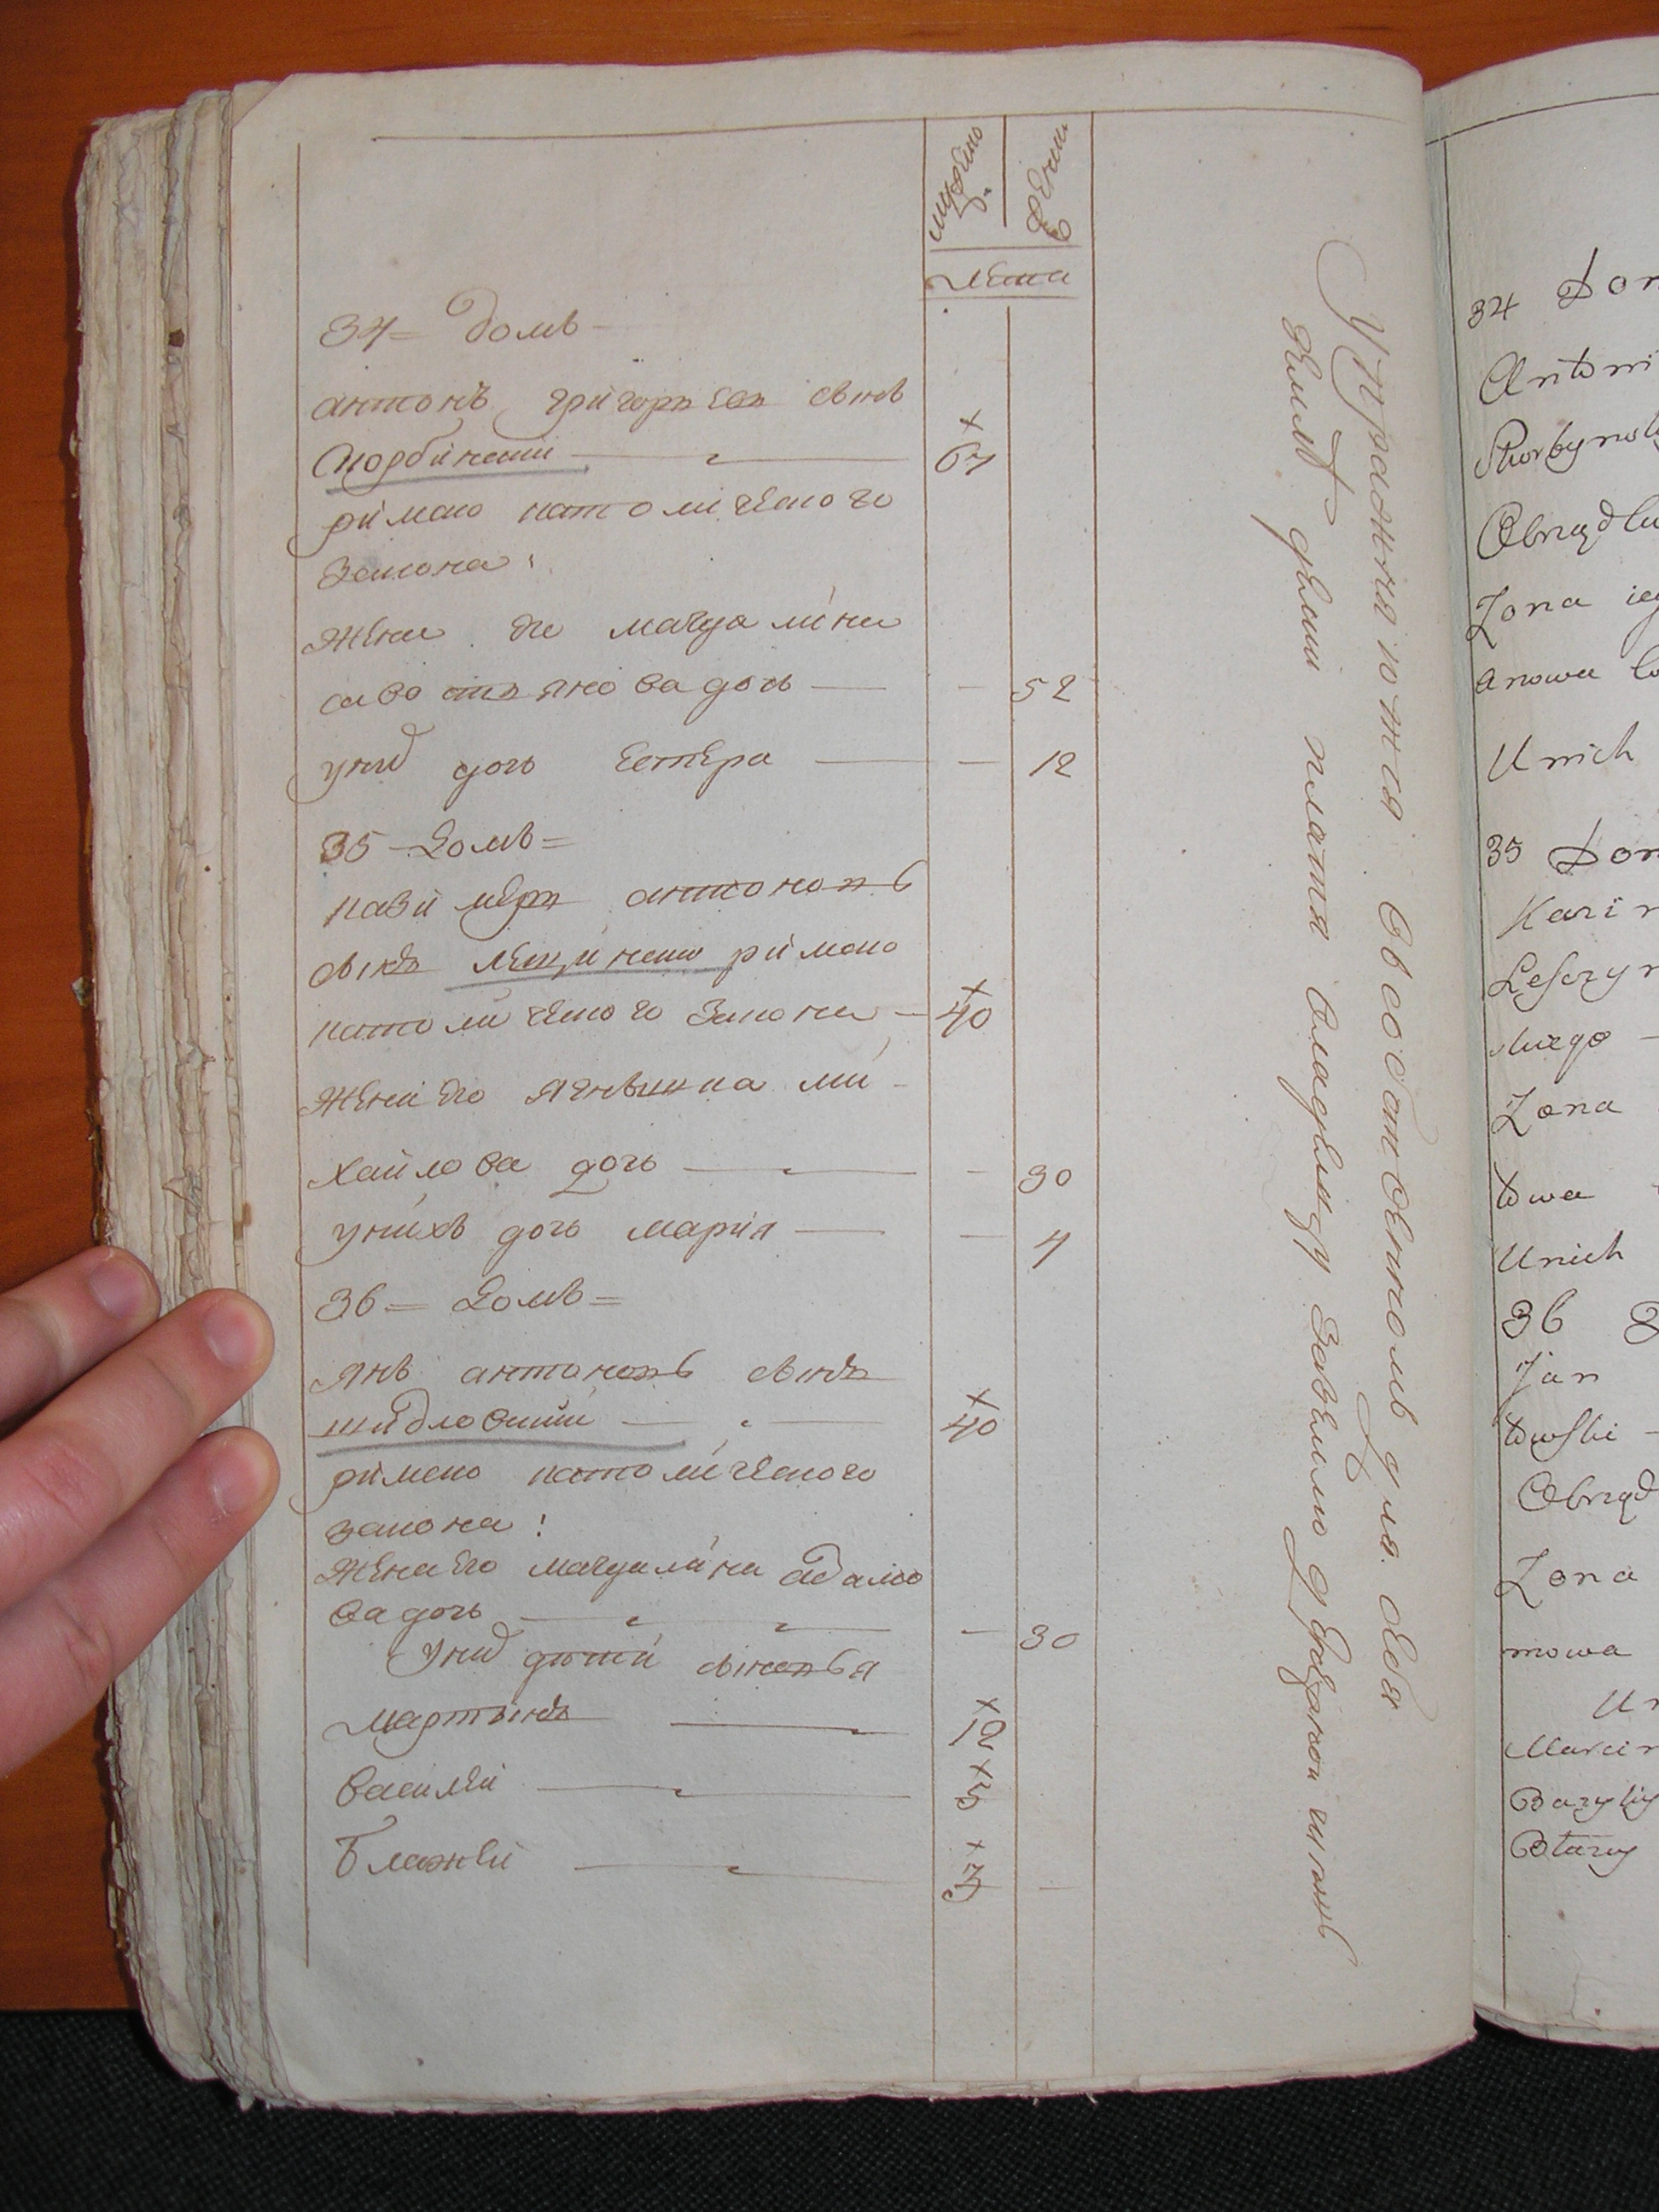 мужеско
женс
лѣта
34 = домъ -
антонъ григорьевъ сынъ
скорбинский 64
римско католическаго
закона:
жена его магдалина
савостьянова дочь - 52
у них дочь естера - 12
35 - домъ =
казимеръ антоновъ
сынъ лещинский римско
католическаго закона - 40
жена его ягнышка ми-
хайлова дочь - 30
у нихъ дочь мария - 4
36 = домъ =
янъ антоновъ сынъ
шидловский 40
римско католическаго
закона:
жена его магдалина адамо
ва дочь - 30
у них дети сыновья
мартынъ 12
василей 5
блажей 3 -
упражняются въ собственномъ для себя
земли платя владельцу
34 Dom
Antoni
Skorbynski
Obrządku
Zona ieg
anowa
Unich
35 Dom
Kazim
Lesczyn
Zona
towa
Unich
36
Jan
towski -
Obrząd
Zona
mowa
Un
Marcin
Bazyli
Błazey